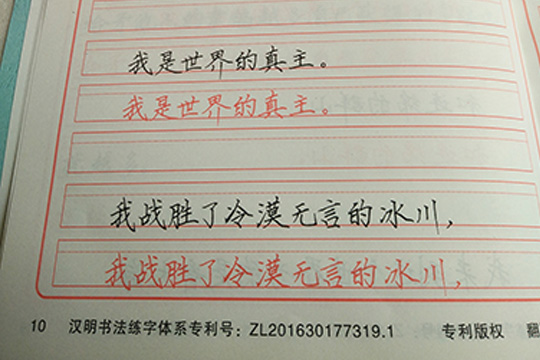 我是世界的真主。
我是世界的真主。
我战胜了冷漠无言的冰川，
我战胜了冷漠无言的冰川，
10 汉明书法练字体系专利号：ZL201630177319.1 专利版权 翻